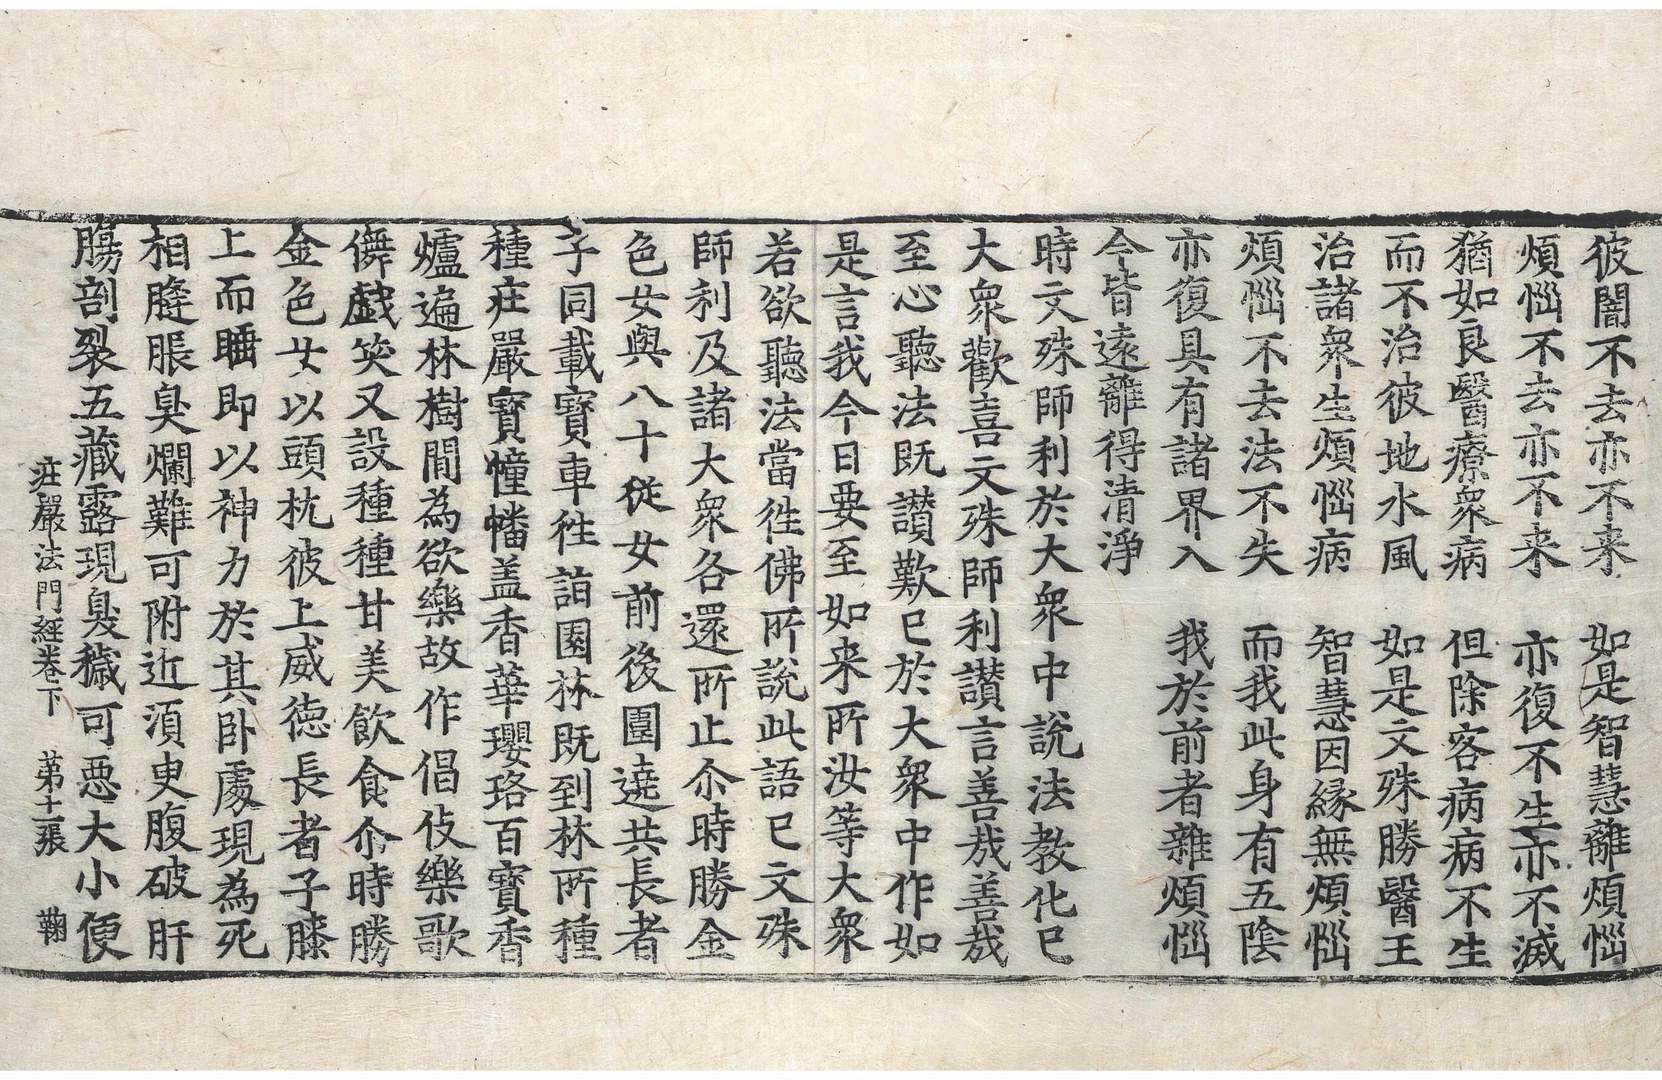 彼闇不去亦不来　如是智慧離煩惱
煩惱不去亦不来　亦復不生亦不滅
猶如良醫療衆病　但除客病病不生
而不治彼地水風　如是文殊勝醫王
治諸衆生煩惱病　智慧因緣無煩惱
煩惱不去法不失　而我此身有五陰
亦復具有諸界入　我於前者雜煩惱
今皆遠離得清淨
時文殊師利於大衆中說法教化已
大衆歡喜文殊師利讃言善哉善哉
至心聽法既讃歎已於大衆中作如
是言我今日要至如来所汝等大衆
若欲聽法當徃佛所說此語已文殊
師利及諸大衆各還所止尒時勝金
色女與八十從女前後圍遶共長者
子同載寶車徃詣園林既到林所種
種疘嚴寶幢幡盖香華瓔珞百寶香
爐遍林樹間為欲樂故作倡伎樂歌
儛戱笑又設種種甘美飲食尒時勝
金色女以頭枕彼上威德長者子膝
上而睡即以神力於其卧處現為死
相膖脹臭爛難可附近湏臾腹破肝
腸剖裂五藏露現臭穢可惡大小便
疘嚴法門經卷下　第十一張　鞠